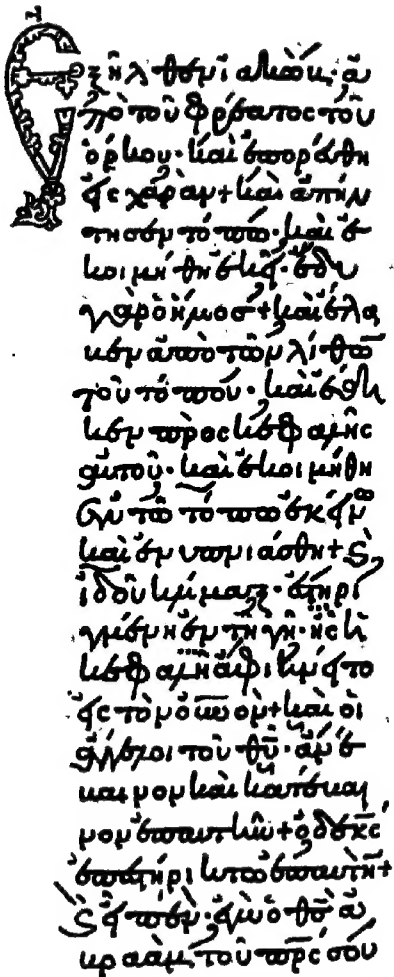 Ἐξῆλθεν ἰακώβ· ἀ
πὸ τοῦ φρέατος τοῦ
ὅρκου· καὶ ἐπορεύθη
εἰς χαρὰν + καὶ ἀπήν
τησεν τόπω· καὶ ἐ
κοιμήθη ἐκεῖ· ἔδυ
γὰρ ὁ ἥλιος + καὶ ἔλα
βεν ἀπὸ τῶν λίθων
τοῦ τόπου· καὶ ἔθη
κεν πρὸς κεφαλῆς
αὐτοῦ· καὶ ἐκοιμήθη
ἐν τῶ τόπω ἐκείνω
καὶ ἐνυπνιάσθη + καὶ
ἰδοὺ κλίμαξ· ἐστηρι
γμένη ἐν τῆ γῆ· ἧς ἡ
κεφαλὴ ἀφικνεῖτο
εἰς τὸν οὐνον + καὶ οἱ
ἄγγελοι τοῦ θυ· ἀνέ
βαινον καὶ κατέβαι
νον ἐπ αὐτὴν + ὁ δὲ κς
ἐπεστήρικτο ἐπ αὐτὴν +
καὶ εἶπεν· ἐγὼ ὁ θς ἀ
βραὰμ τοῦ πρς σου